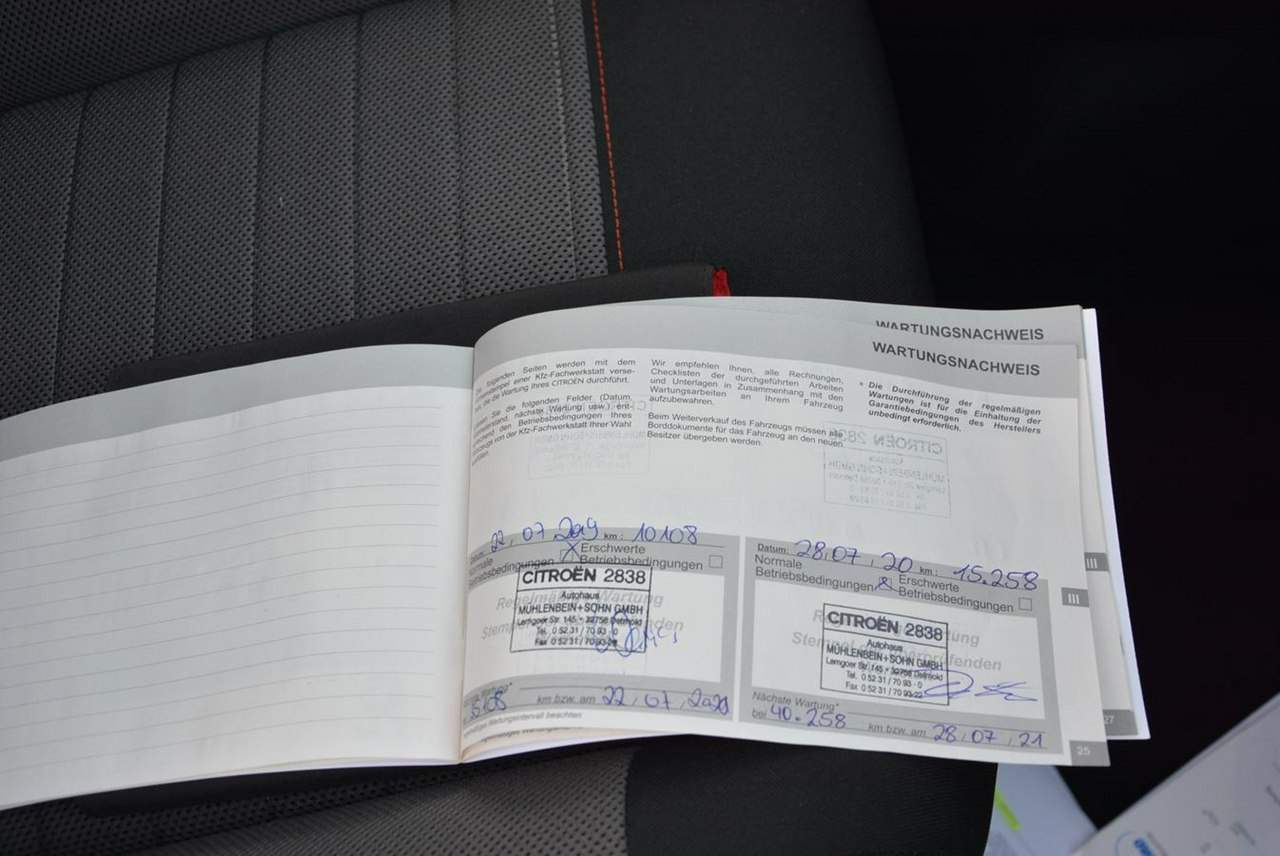 WARTUNGSNACHWEIS
WARTUNGSNACHWEIS
folgenden Seiten werden mit dem
einer Kfz-Fachwerkstatt verse-
die die Wartung Ihres CITROËN durchführt.
Sie die folgenden Felder (Datum,
nächste Wartung usw.) ent-
den Betriebsbedingungen Ihres
von der Kfz-Fachwerkstatt Ihrer Wahl
Wir empfehlen Ihnen, alle Rechnungen,
Checklisten der durchgeführten Arbeiten
und Unterlagen in Zusammenhang mit den
Wartungsarbeiten an Ihrem Fahrzeug
aufzubewahren.
Beim Weiterverkauf des Fahrzeugs müssen alle
Borddokumente für das Fahrzeug an den neuen
Besitzer übergeben werden.
* Die Durchführung der regelmäßigen
Wartungen ist für die Einhaltung der
Garantiebedingungen des Herstellers
unbedingt erforderlich.
Datum: 22, 07 2019 km: 10108
Normale
Betriebsbedingungen X Erschwerte
Betriebsbedingungen
Regelmäßige Wartung
CITROËN 2838
Autohaus
MÜHLENBEIN+SOHN GMBH
Lemgoer Str. 145 • 32758 Detmold
Tel. 0 52 31 / 70 93 - 0
Fax 0 52 31 / 70 93-22
km bzw. am 22, 07, 2020
Datum: 28,07, 20 km: 15.258
Normale
Betriebsbedingungen X Erschwerte
Betriebsbedingungen
CITROËN 2838
Autohaus
MÜHLENBEIN+SOHN GMBH
Lemgoer Str. 145 • 32758 Detmold
Tel. 0 52 31 / 70 93 - 0
Fax 0 52 31 / 70 93-22
Nächste Wartung*
bei 40.258 km bzw. am 28, 07, 21
III
III
27
25